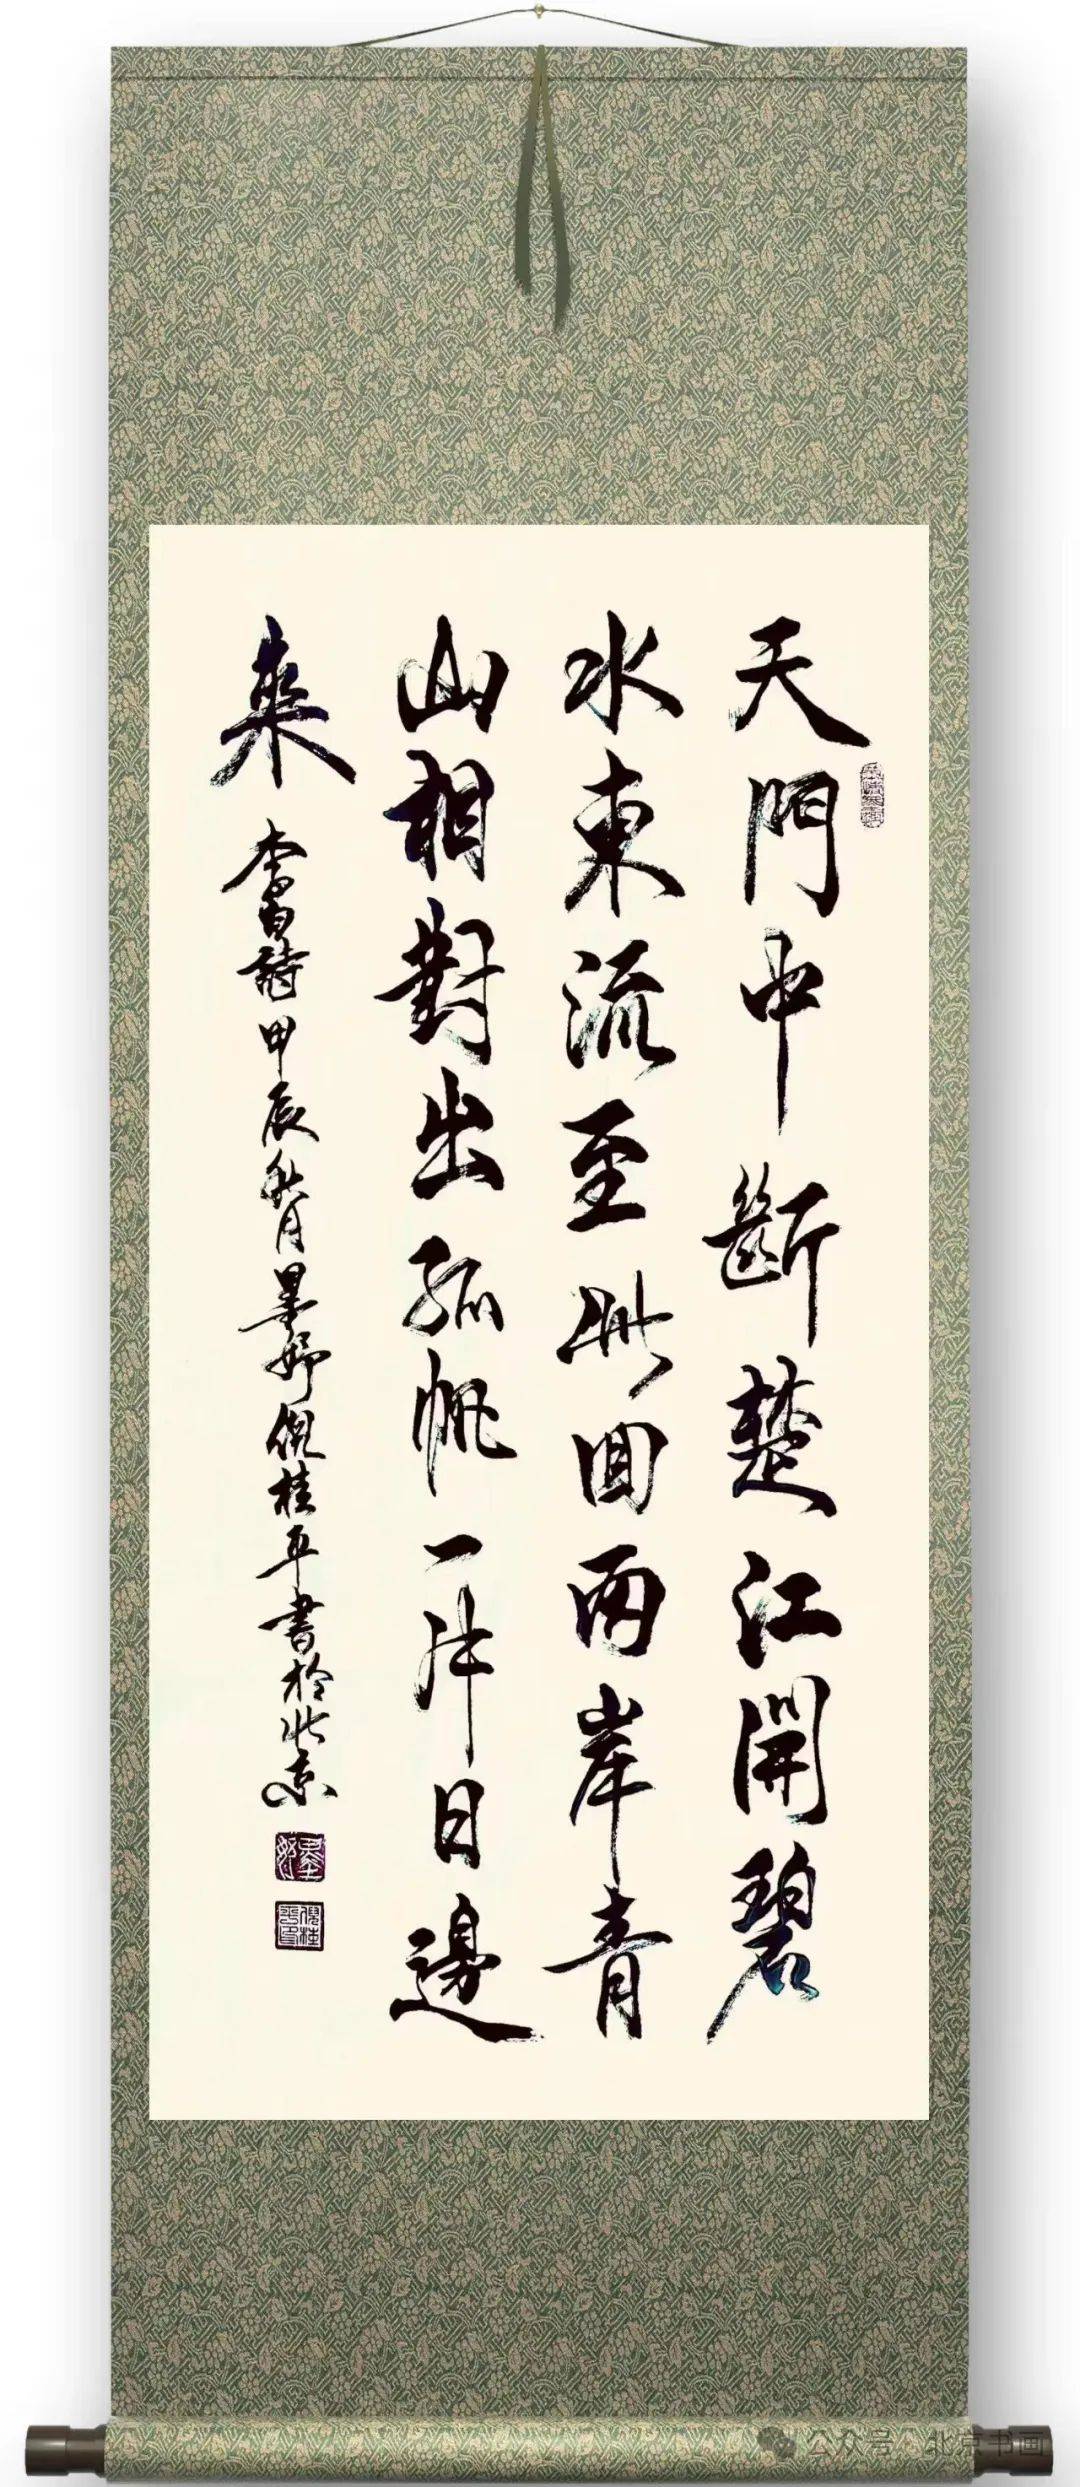 天門中斷楚江開碧
水東流至此回兩岸青
山相對出孤帆一片日邊
來
李白詩甲辰秋月墨妤倪桂平書於北京
墨妤
倪桂平印
公众号 · 北京书画